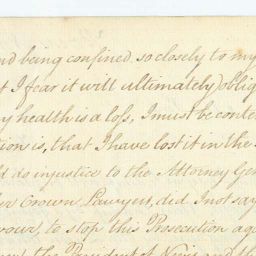 nd being confined so closely to my
t I fear it will ultimately oblig
y health is a loss, I must be conte
tion is, that I have lost it in the
ld do injustice to the Attorney Gen
her Crown Lawyers, did I not say
vour, to stop this Prosecution aga
the President of Nevis and th